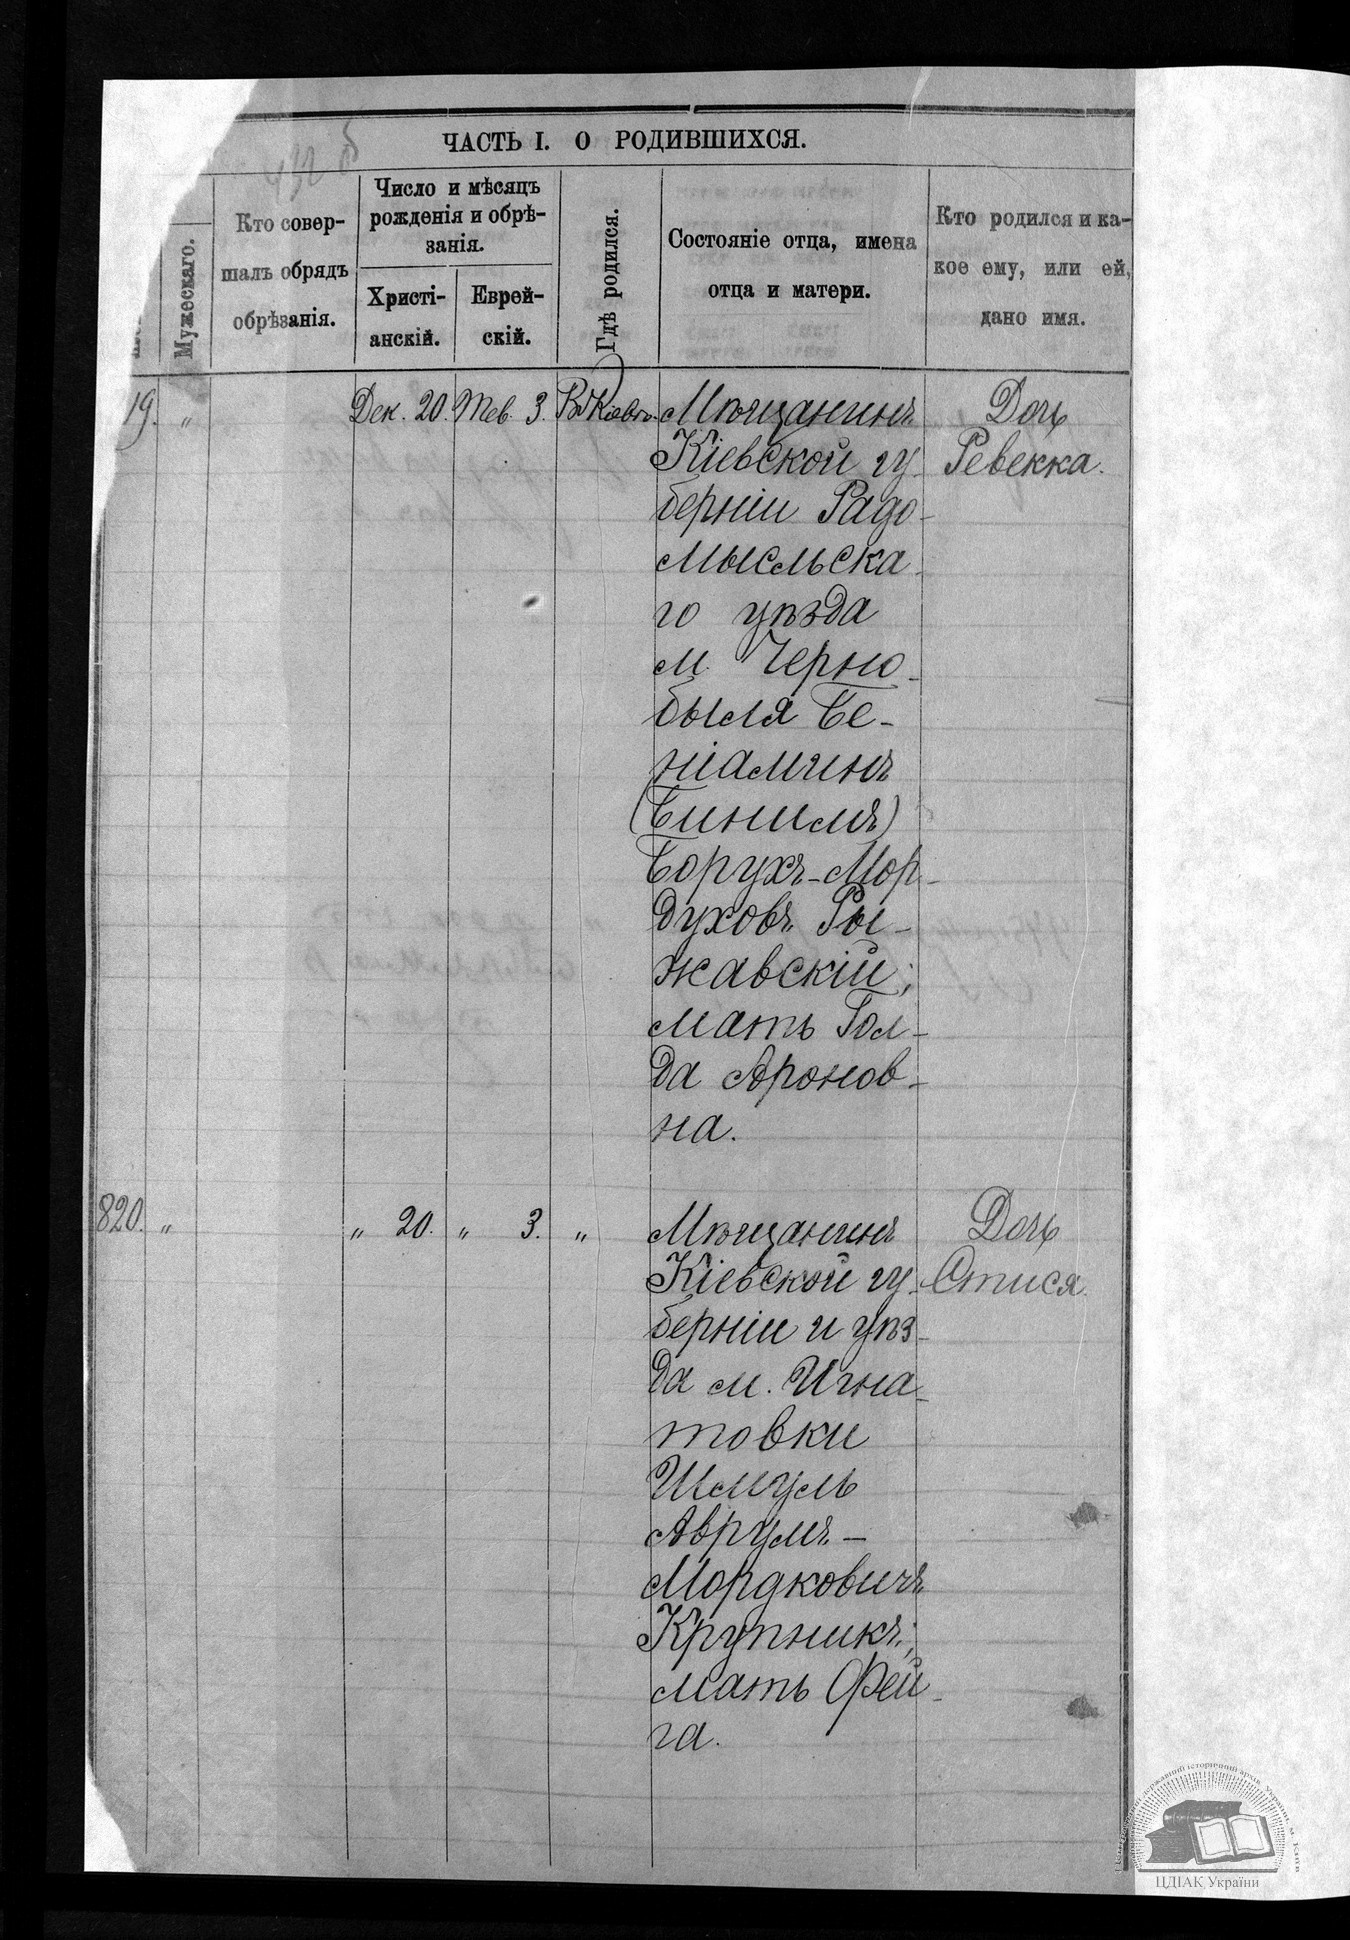 ЧАСТЬ I. О РОДИВШИХСЯ.
Мужескаго.
Кто совер-
шалъ обрядъ
обрѣзанія.
Число и мѣсяцъ
рожденія и обрѣ-
занія.
Христі-
анскій.
Еврей-
скій.
Гдѣ родился.
Состояніе отца, имена
отца и матери.
Кто родился и ка-
кое ему, или ей,
дано имя.
19. „ Дек. 20. Тев. 3. Въ Кіевѣ. Мѣщанинъ Дочь
Кіевской гу- Ревекка.
берніи Радо-
мысльска-
го уѣзда
м. Черно-
быля Бе-
ніаминъ
(Бинимъ)
Борухъ-Мор-
духовъ Ры-
жавскій;
мать Гол-
да Аронов-
на.
820. „ „ 20. „ 3. „ Мѣщанинъ Дочь
Кіевской гу- Стися.
берніи и уѣз-
да м. Игна-
товки
Шмуль
Аврумъ-
Мордковичъ
Крупникъ;
мать Фей-
га.
ЦДІАК України